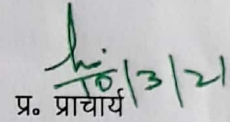 10/3/21
प्र० प्राचार्य